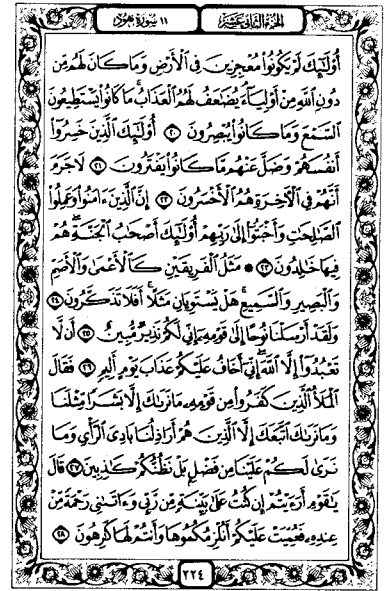 الجزء الثاني عشر
١١ سورة هود
أُوْلَٰٓئِكَ لَمْ يَكُونُواْ مُعْجِزِينَ فِي ٱلْأَرْضِ وَمَا كَانَ لَهُم مِّن
دُونِ ٱللَّهِ مِنْ أَوْلِيَآءَۘ يُضَٰعَفُ لَهُمُ ٱلْعَذَابُۚ مَا كَانُواْ يَسْتَطِيعُونَ
ٱلسَّمْعَ وَمَا كَانُواْ يُبْصِرُونَ ٢٠ أُوْلَٰٓئِكَ ٱلَّذِينَ خَسِرُوٓاْ
أَنفُسَهُمْ وَضَلَّ عَنْهُم مَّا كَانُواْ يَفْتَرُونَ ٢١ لَا جَرَمَ
أَنَّهُمْ فِي ٱلْأٓخِرَةِ هُمُ ٱلْأَخْسَرُونَ ٢٢ إِنَّ ٱلَّذِينَ ءَامَنُواْ وَعَمِلُواْ
ٱلصَّٰلِحَٰتِ وَأَخْبَتُوٓاْ إِلَىٰ رَبِّهِمْ أُوْلَٰٓئِكَ أَصْحَٰبُ ٱلْجَنَّةِۖ هُمْ
فِيهَا خَٰلِدُونَ ٢٣ ۞ مَثَلُ ٱلْفَرِيقَيْنِ كَٱلْأَعْمَىٰ وَٱلْأَصَمِّ
وَٱلْبَصِيرِ وَٱلسَّمِيعِۚ هَلْ يَسْتَوِيَانِ مَثَلًاۚ أَفَلَا تَذَكَّرُونَ ٢٤
وَلَقَدْ أَرْسَلْنَا نُوحًا إِلَىٰ قَوْمِهِۦٓ إِنِّي لَكُمْ نَذِيرٌ مُّبِينٌ ٢٥ أَن لَّا
تَعْبُدُوٓاْ إِلَّا ٱللَّهَۖ إِنِّيٓ أَخَافُ عَلَيْكُمْ عَذَابَ يَوْمٍ أَلِيمٍ ٢٦ فَقَالَ
ٱلْمَلَأُ ٱلَّذِينَ كَفَرُواْ مِن قَوْمِهِۦ مَا نَرَىٰكَ إِلَّا بَشَرًا مِّثْلَنَا
وَمَا نَرَىٰكَ ٱتَّبَعَكَ إِلَّا ٱلَّذِينَ هُمْ أَرَاذِلُنَا بَادِيَ ٱلرَّأْيِ وَمَا
نَرَىٰ لَكُمْ عَلَيْنَا مِن فَضْلٍۭ بَلْ نَظُنُّكُمْ كَٰذِبِينَ ٢٧ قَالَ
يَٰقَوْمِ أَرَءَيْتُمْ إِن كُنتُ عَلَىٰ بَيِّنَةٍ مِّن رَّبِّي وَءَاتَىٰنِي رَحْمَةً مِّنْ
عِندِهِۦ فَعُمِّيَتْ عَلَيْكُمْ أَنُلْزِمُكُمُوهَا وَأَنتُمْ لَهَا كَٰرِهُونَ ٢٨
٢٢٤